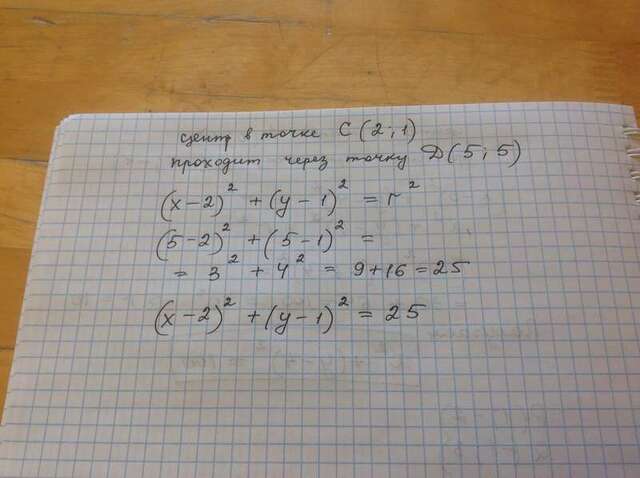 центр в точке C(2;1)
проходит через точку D(5;5)
(x-2)² + (y-1)² = r²
(5-2)² + (5-1)² =
= 3² + 4² = 9+16 = 25
(x-2)² + (y-1)² = 25